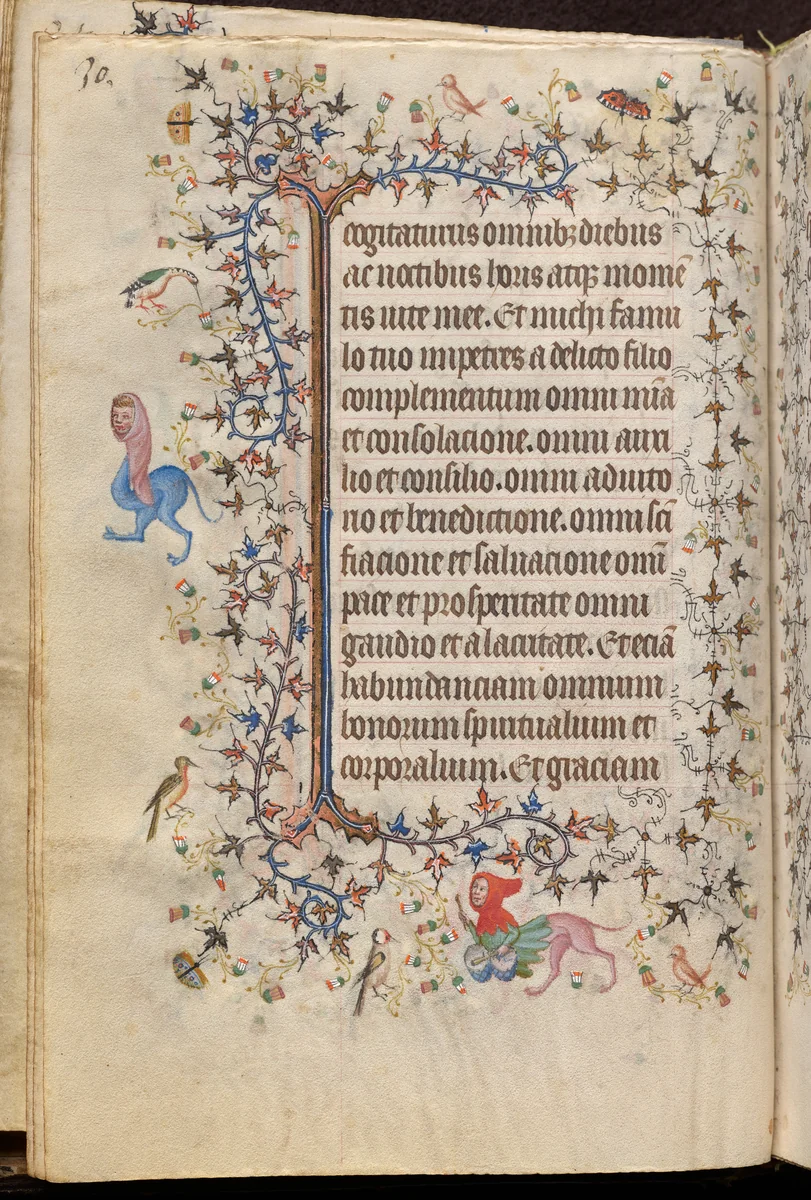 30.
cogitaturus omnibꝫ diebus
ac noctibus horis atqꝫ momē
tis uite mee. Et michi famu
lo tuo impetres a dilecto filio
complementum omni mīa
et consolacione. omni auxi
lio et consilio. omni adiuto
rio et benedictione. omni scī
ficacione et saluacione omī
pace et prosperitate omni
gaudio et alacritate. Et eciā
habundanciam omnium
bonorum spiritualium et
corporalium. Et graciam